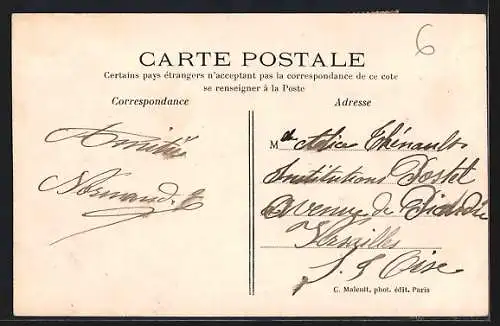 6
CARTE POSTALE
Certains pays étrangers n'acceptant pas la correspondance de ce cote
se renseigner à la Poste
Correspondance
Adresse
Amitiés
Normand
Mlle Alice Thénault
Institutions Postel
Avenue de
Versailles
S. & Oise
C. Malcuit, phot. édit. Paris